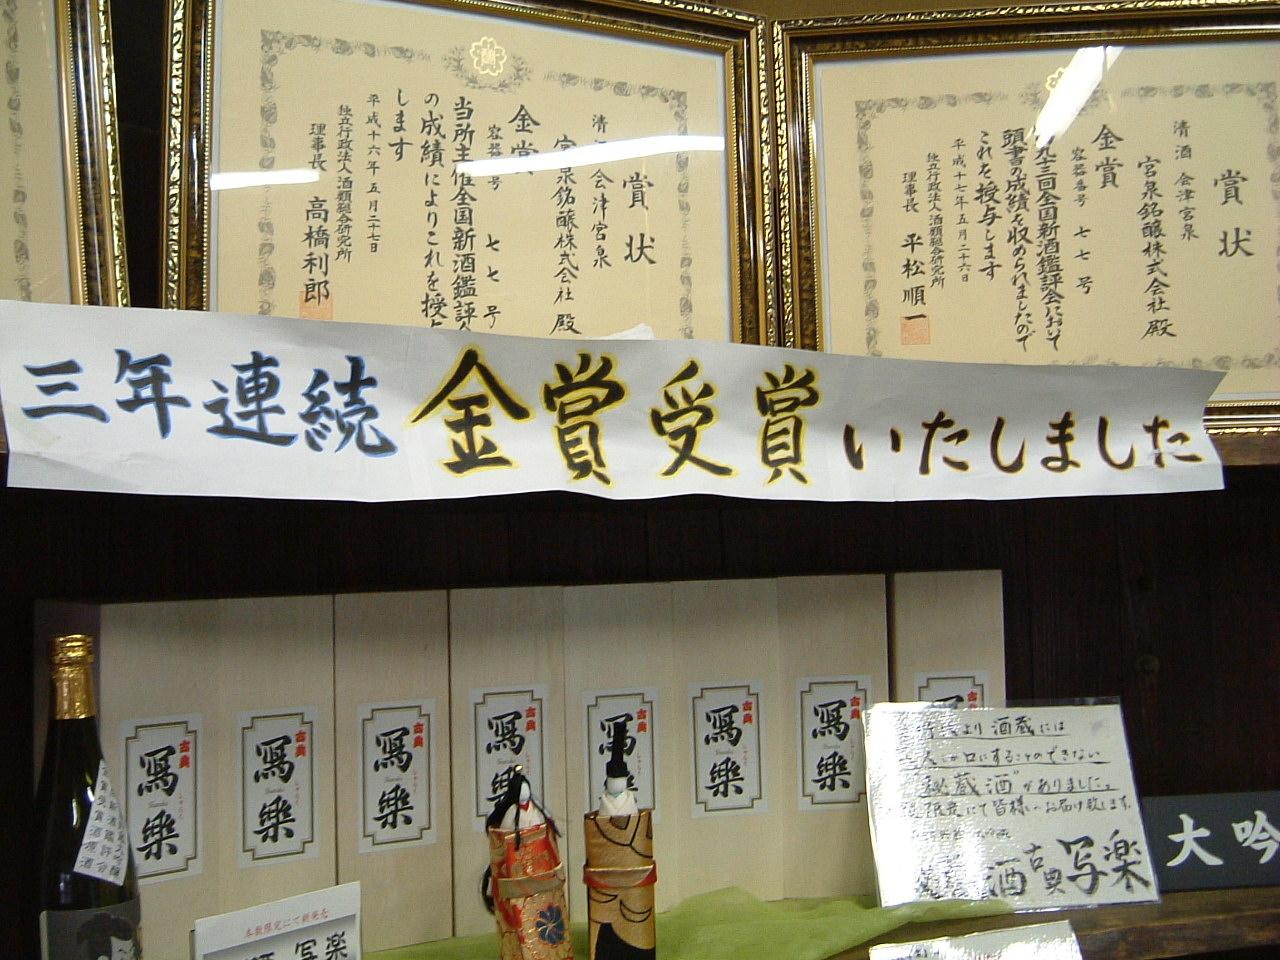 賞状
清酒 会津宮泉
宮泉銘醸株式会社 殿
金賞
容器番号 七七号
当所主催全国新酒鑑評会
の成績によりこれを授与
します
平成十六年五月二十七日
独立行政法人酒類総合研究所
理事長 高橋利郎
賞状
清酒 会津宮泉
宮泉銘醸株式会社 殿
金賞
容器番号 七七号
九十三回全国新酒鑑評会において
頭書の成績を収められましたので
これを授与します
平成十七年五月二十六日
独立行政法人酒類総合研究所
理事長 平松順一
三年連続金賞受賞いたしました
古典
寫樂
古典
寫樂
古典
寫樂
古典
寫樂
古典
寫樂
古典
寫樂
古典
寫樂
より酒蔵には
口にすることのできない
秘蔵酒"がありました。
にて皆様へお届け致します。
酒 古典 写楽
大吟
本数限定にて新発売
写楽